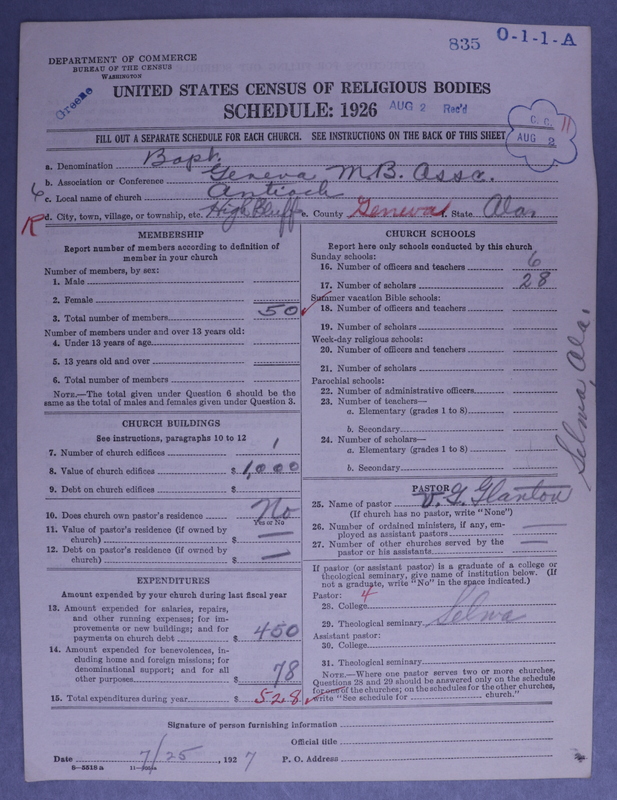 835 O-1-1-A
DEPARTMENT OF COMMERCE
BUREAU OF THE CENSUS
WASHINGTON
Greene
UNITED STATES CENSUS OF RELIGIOUS BODIES
SCHEDULE: 1926 AUG 2 Rec'd
C. C. 11
AUG 2
FILL OUT A SEPARATE SCHEDULE FOR EACH CHURCH. SEE INSTRUCTIONS ON THE BACK OF THIS SHEET
a. Denomination Bapt.
b. Association or Conference Geneva M.B. Assc.
6 c. Local name of church Antioch
R d. City, town, village, or township, etc. High Bluff e. County Geneva f. State Ala.
MEMBERSHIP
Report number of members according to definition of
member in your church
Number of members, by sex:
1. Male
2. Female
3. Total number of members 50 ✓
Number of members under and over 13 years old:
4. Under 13 years of age
5. 13 years old and over
6. Total number of members
NOTE.—The total given under Question 6 should be the
same as the total of males and females given under Question 3.
CHURCH BUILDINGS
See instructions, paragraphs 10 to 12
7. Number of church edifices 1
8. Value of church edifices $ 1,000
9. Debt on church edifices $
10. Does church own pastor's residence No
Yes or No
11. Value of pastor's residence (if owned by
church) $ —
12. Debt on pastor's residence (if owned by
church) $ —
EXPENDITURES
Amount expended by your church during last fiscal year
13. Amount expended for salaries, repairs,
and other running expenses; for im-
provements or new buildings; and for
payments on church debt $ 450
14. Amount expended for benevolences, in-
cluding home and foreign missions; for
denominational support; and for all
other purposes $ 78
15. Total expenditures during year $ 528 ✓
CHURCH SCHOOLS
Report here only schools conducted by this church
Sunday schools:
16. Number of officers and teachers 6
17. Number of scholars 28
Summer vacation Bible schools:
18. Number of officers and teachers
19. Number of scholars
Week-day religious schools:
20. Number of officers and teachers
21. Number of scholars
Parochial schools:
22. Number of administrative officers
23. Number of teachers—
a. Elementary (grades 1 to 8)
b. Secondary
24. Number of scholars—
a. Elementary (grades 1 to 8)
b. Secondary
PASTOR
25. Name of pastor V. G. Glanton
(If church has no pastor, write "None")
26. Number of ordained ministers, if any, em-
ployed as assistant pastors —
27. Number of other churches served by the
pastor or his assistants —
If pastor (or assistant pastor) is a graduate of a college or
theological seminary, give name of institution below. (If
not a graduate, write "No" in the space indicated.)
Pastor: 4
28. College
29. Theological seminary Selma
Assistant pastor:
30. College
31. Theological seminary
NOTE.—Where one pastor serves two or more churches,
Questions 28 and 29 should be answered only on the schedule
for one of the churches; on the schedules for the other churches,
write "See schedule for church."
Selma, Ala.
Signature of person furnishing information
Official title
Date 7/25, 1927 P. O. Address
8—5518 a